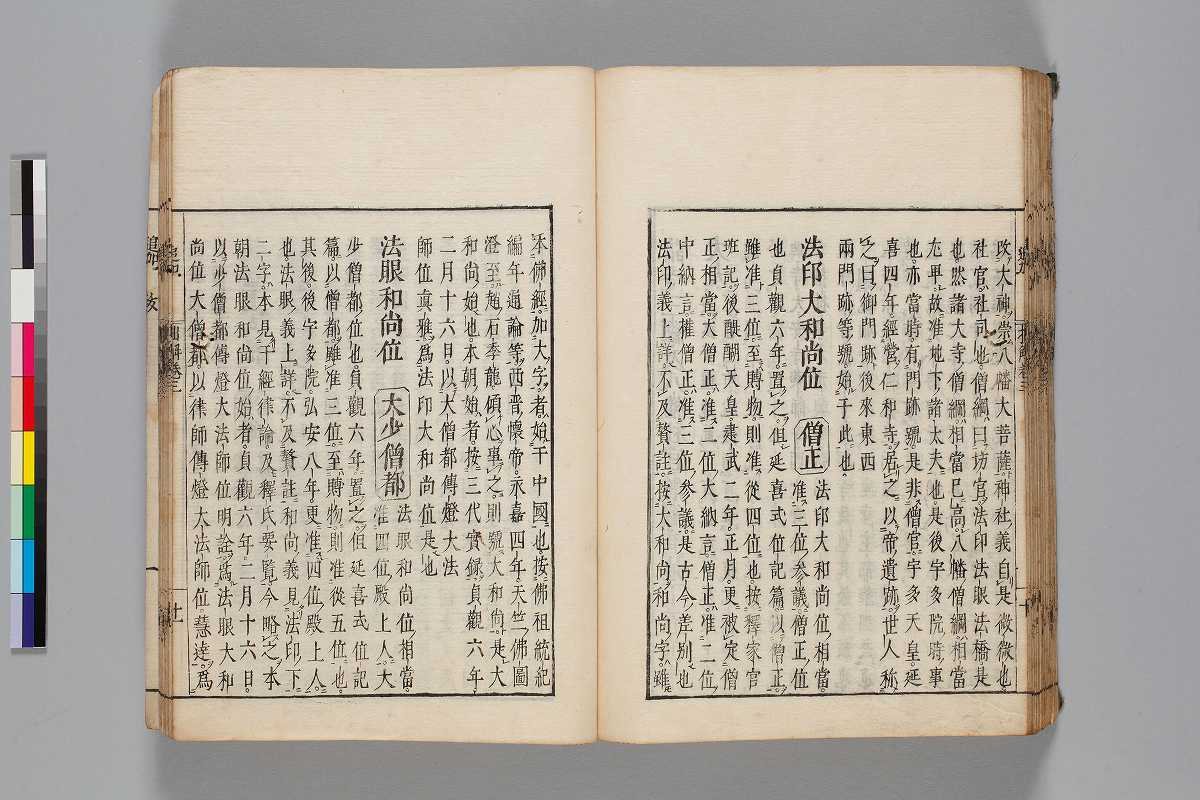 改大神崇八幡大菩薩神社義自是微微也
社官社司也僧綱曰坊官法印法眼法橋是
也然諸大寺僧綱相當已高八幡僧綱相當
左平故准地下諸太夫也是後宇多院時事
也亦當時有門跡號是非僧官宇多天皇延
喜四年經營仁和寺居之以帝遺跡世人稱
之曰御門跡後來東西
兩門跡等號始于此也
法印大和尚位 僧正 法印大和尚位相當
准三位參議僧正位
也貞觀六年置之但延喜式位記篇以僧正
雖准三位至賻物則准從四位也按釋家官
班記後醍醐天皇建武二年正月更被定僧
正相當大僧正准二位大納言僧正准二位
中納言權僧正准三位參議是古今差別也
法印義上詳不及贅註按大和尚和尚字雖
本佛經加大字者始于中國也按佛祖統紀
編年通論等西晋懷帝永嘉四年天竺佛圖
澄至趙石季龍傾心事之則號大和尚是大
和尚始也本朝始者按三代實録貞觀六年
二月十六日以大僧都傳燈大法
師位眞雅爲法印大和尚位是也
法眼和尚位 大少僧都 法眼和尚位相當
准四位殿上人大
少僧都位也貞觀六年置之但延喜式位記
篇以僧都雖准三位至賻物則准從五位也
其後後宇多院弘安八年更准四位殿上人
也法眼義上詳不及贅註和尚義見法印下
二字本見于經律論及釋氏要覧今略之本
朝法眼和尚位始者貞觀六年二月十六日
以少僧都傳燈大法師位明詮爲法眼大和
尚位大僧都以律師傳燈大法師位慧達爲